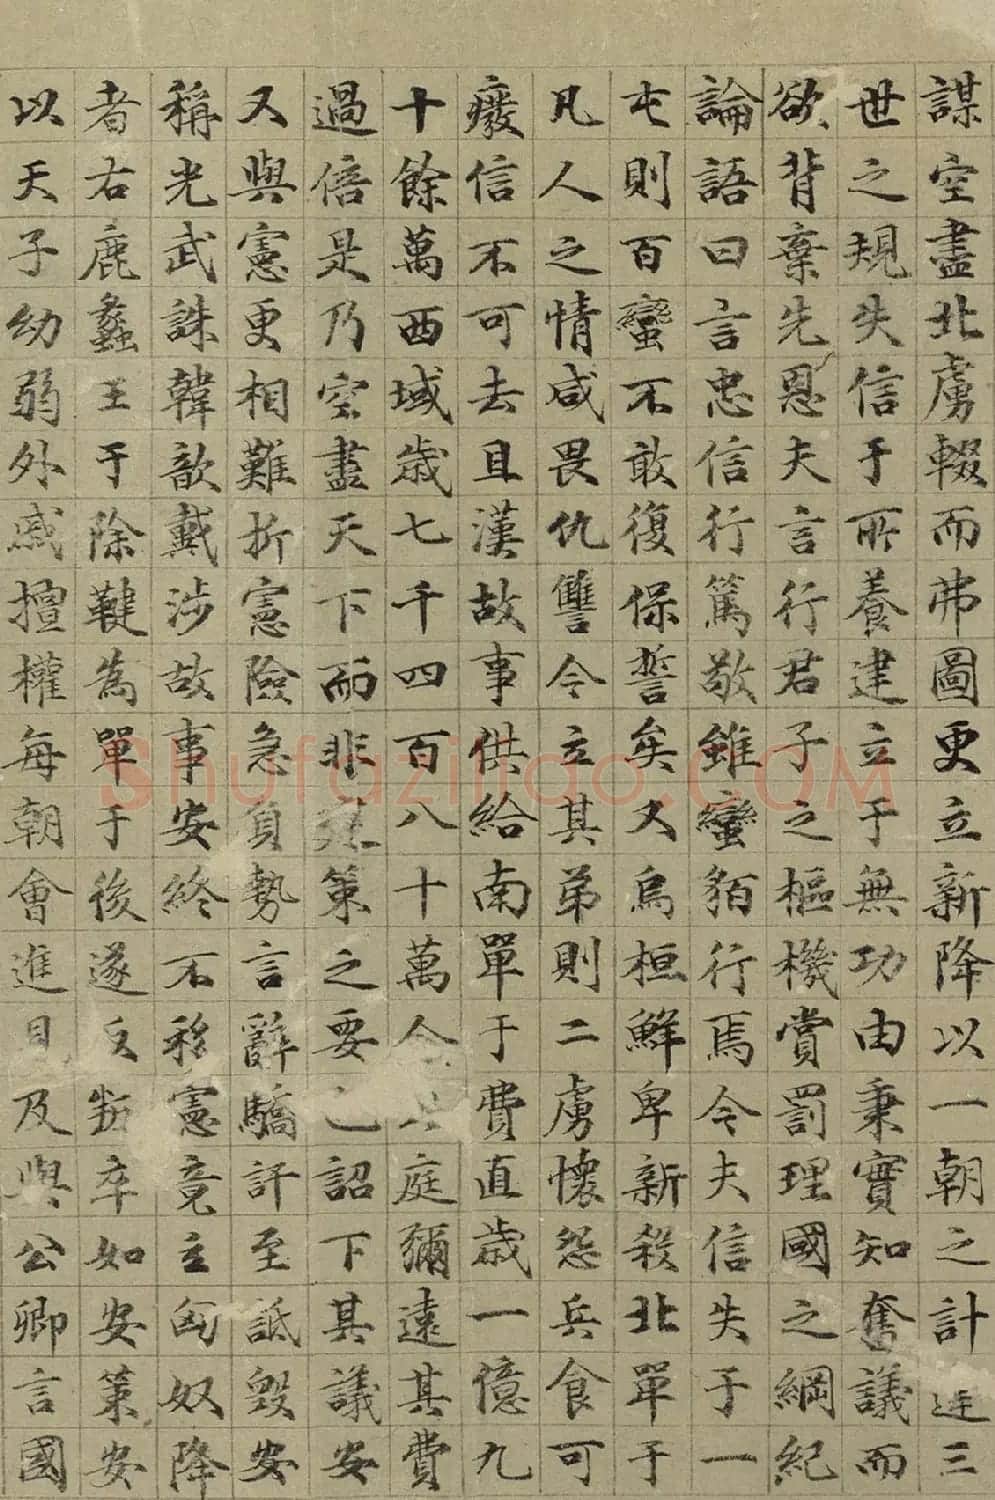 謀空盡北虜輟而弗圖更立新降以一朝之計違三
世之規失信于所養建立于無功由秉實知奮議而
欲背棄先恩夫言行君子之樞機賞罰理國之綱紀
論語曰言忠信行篤敬雖蠻貊行焉今夫信失于一
屯則百蠻不敢復保誓矣又烏桓鮮卑新殺北單于
凡人之情咸畏仇讐今立其弟則二虜懷怨兵食可
癈信不可去且漢故事供給南單于費直歲一億九
十餘萬西域歲七千四百八十萬今庭彌遠其費
過倍是乃空盡天下而非策之要也詔下其議安
又與憲更相難折憲險急負勢言辭驕訐至詆毀安
稱光武誅韓歆戴涉故事安終不移憲竟立匈奴降
者右鹿蠡王于除鞬為單于後遂反叛卒如安策安
以天子幼弱外戚擅權每朝會進見及與公卿言國
Shufaziliao.COM